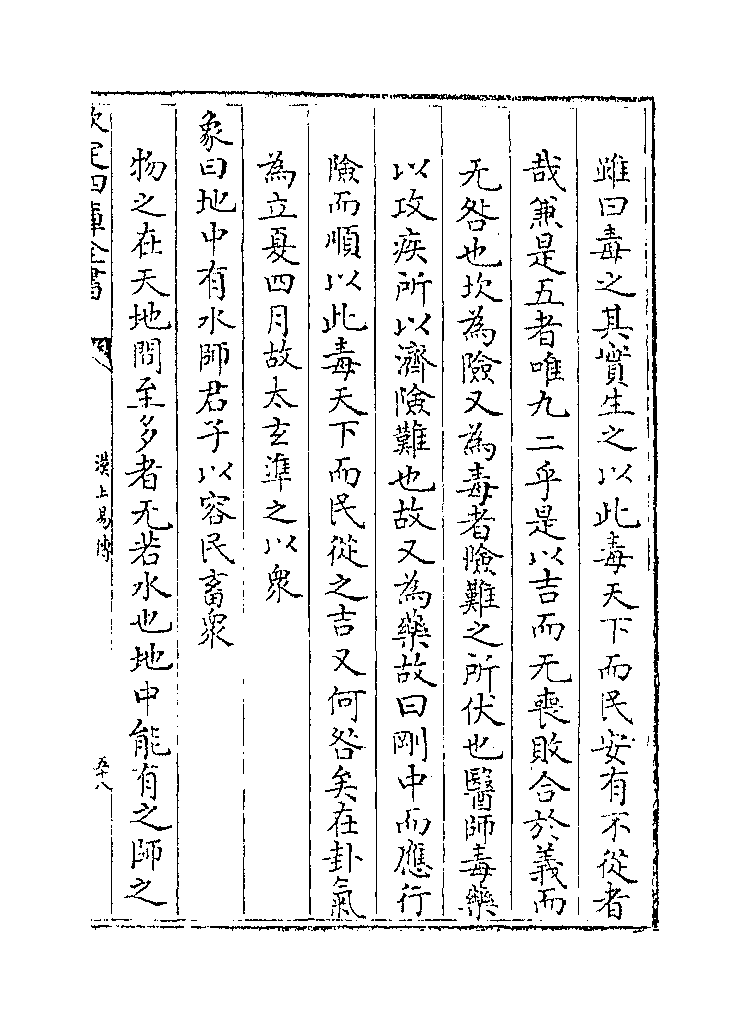 雖曰毒之其實生之以此毒天下而民安有不從者
哉兼是五者唯九二乎是以吉而无喪敗合於義而
无咎也坎為險又為毒者險難之所伏也醫師毒藥
以攻疾所以濟險難也故又為藥故曰剛中而應行
險而順以此毒天下而民從之吉又何咎矣在卦氣
為立夏四月故太𤣥準之以衆
象曰地中有水師君子以容民畜衆
物之在天地間至多者无若水也地中能有之師之
欽定四庫全書
漢上易傳
五十八